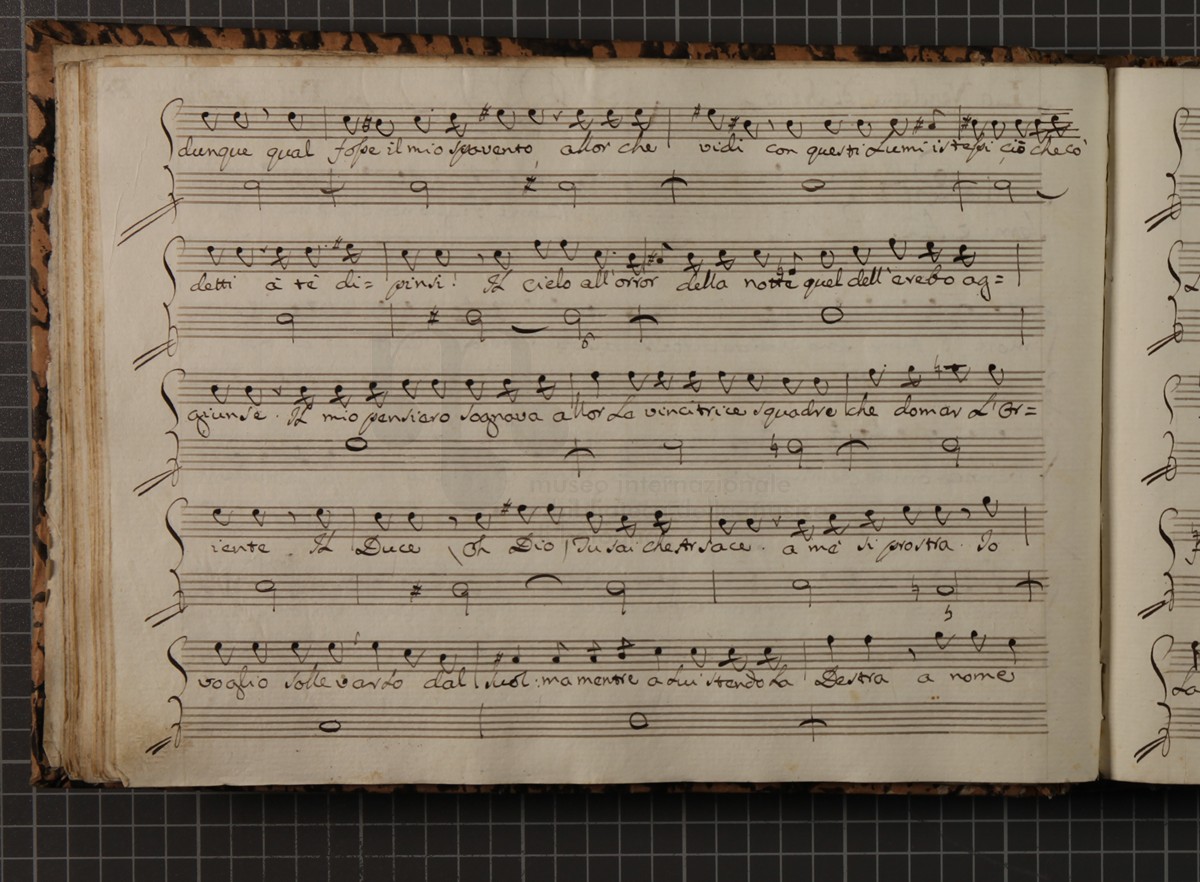 dunque qual fosse il mio spavento, allor che vidi con questi Lumi istessi ciò che cò
detti à tè di= pinsi! Il cielo all'orror della notte quel dell'erebo ag=
giunse. Il mio pensiero sognava allor La vincitrice squadre che domar L'Or=
iente Il Duce (Oh Dio) Tu sai che Arsace. a me si prostra. Io
voglio sollevarlo dal suol: ma mentre a Lui stendo La Destra a nome
museo internazionale
La